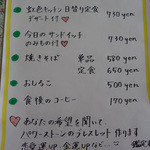 虹色キッチン日替り定食
デザート付 730yen
今日のサンドイッチ
のみもの付 730yen
焼きそば 単品 580yen
定食 650yen
おしるこ 500yen
食後のコーヒー 170yen
あなたの希望を聞いて
パワーストーンのブレスレット作ります
恋愛運UP・金運UPなど…